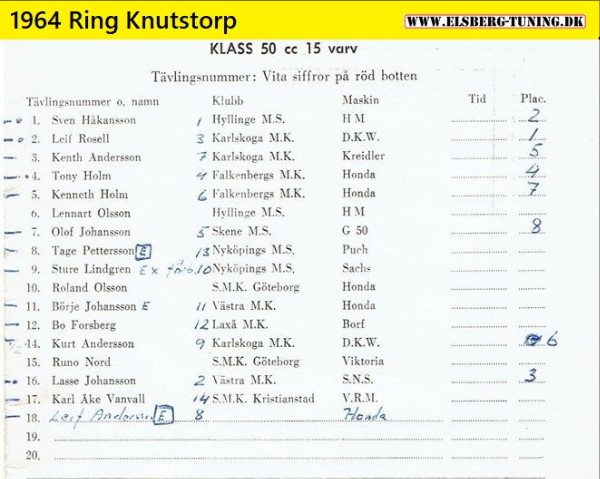 1964 Ring Knutstorp
WWW.ELSBERG-TUNING.DK
KLASS 50 cc 15 varv
Tävlingsnummer: Vita siffror på röd botten
Tävlingsnummer o. namn Klubb Maskin Tid Plac.
1. Sven Håkansson 1 Hyllinge M.S. H M 2
2. Leif Rosell 3 Karlskoga M.K. D.K.W. 1
3. Kenth Andersson 7 Karlskoga M.K. Kreidler 5
4. Tony Holm 4 Falkenbergs M.K. Honda 4
5. Kenneth Holm 6 Falkenbergs M.K. Honda 7
6. Lennart Olsson Hyllinge M.S. H M
7. Olof Johansson 5 Skene M.S. G 50 8
8. Tage Pettersson E 13 Nyköpings M.S. Puch
9. Sture Lindgren Ex 10 Nyköpings M.S. Sachs
10. Roland Olsson S.M.K. Göteborg Honda
11. Börje Johansson E 11 Västra M.K. Honda
12. Bo Forsberg 12 Laxå M.K. Borf
14. Kurt Andersson 9 Karlskoga M.K. D.K.W. 6
15. Runo Nord S.M.K. Göteborg Viktoria
16. Lasse Johansson 2 Västra M.K. S.N.S. 3
17. Karl Åke Vanvall 14 S.M.K. Kristianstad V.R.M.
18. Leif Andersson E 8 Honda
19.
20.